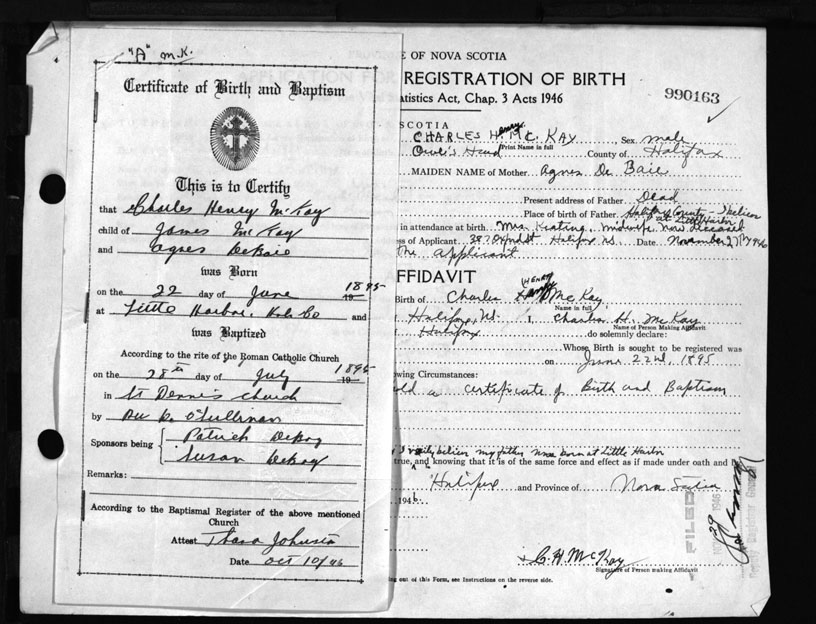 "A" M.K.
Certificate of Birth and Baptism
This is to Certify
that Charles Henry McKay
child of James McKay
and Agnes DeBaie
was Born
on the 22 day of June 1895
at Little Harbor, Hfx Co and
was Baptized
According to the rite of the Roman Catholic Church
on the 28th day of July 1895
in St Dennis Church
by D. O'Sullivan
Sponsors being Patrick
Susan
Remarks:
According to the Baptismal Register of the above mentioned
Church
Attest Johnson
Date Oct 10/46
E OF NOVA SCOTIA
REGISTRATION OF BIRTH
atistics Act, Chap. 3 Acts 1946
990163
SCOTIA
CHARLES HENRY Mc KAY, Sex male
Print Name in full
Owl's Head County of Halifax
MAIDEN NAME of Mother Agnes De Baie
Present address of Father Dead
Place of birth of Father Halifax County I believe
at Little Harbor
in attendance at birth Mrs Keating, midwife now deceased
ss of Applicant Halifax N.S. Date November 27th 1946
the applicant
AFFIDAVIT
Birth of Charles HENRY McKay
Name in full
Halifax, N.S. I, Charles H. McKay
Name of Person Making Affidavit
Halifax do solemnly declare:
Whose Birth is sought to be registered was
on June 22nd, 1895
owing Circumstances:
old a certificate of Birth and Baptism
I verily believe my father was born at Little Harbor
true, and knowing that it is of the same force and effect as if made under oath and
Halifax and Province of Nova Scotia
1946
FILED
29 1946
C H McKay
Signature of Person making Affidavit
ing out of this Form, see Instructions on the reverse side.